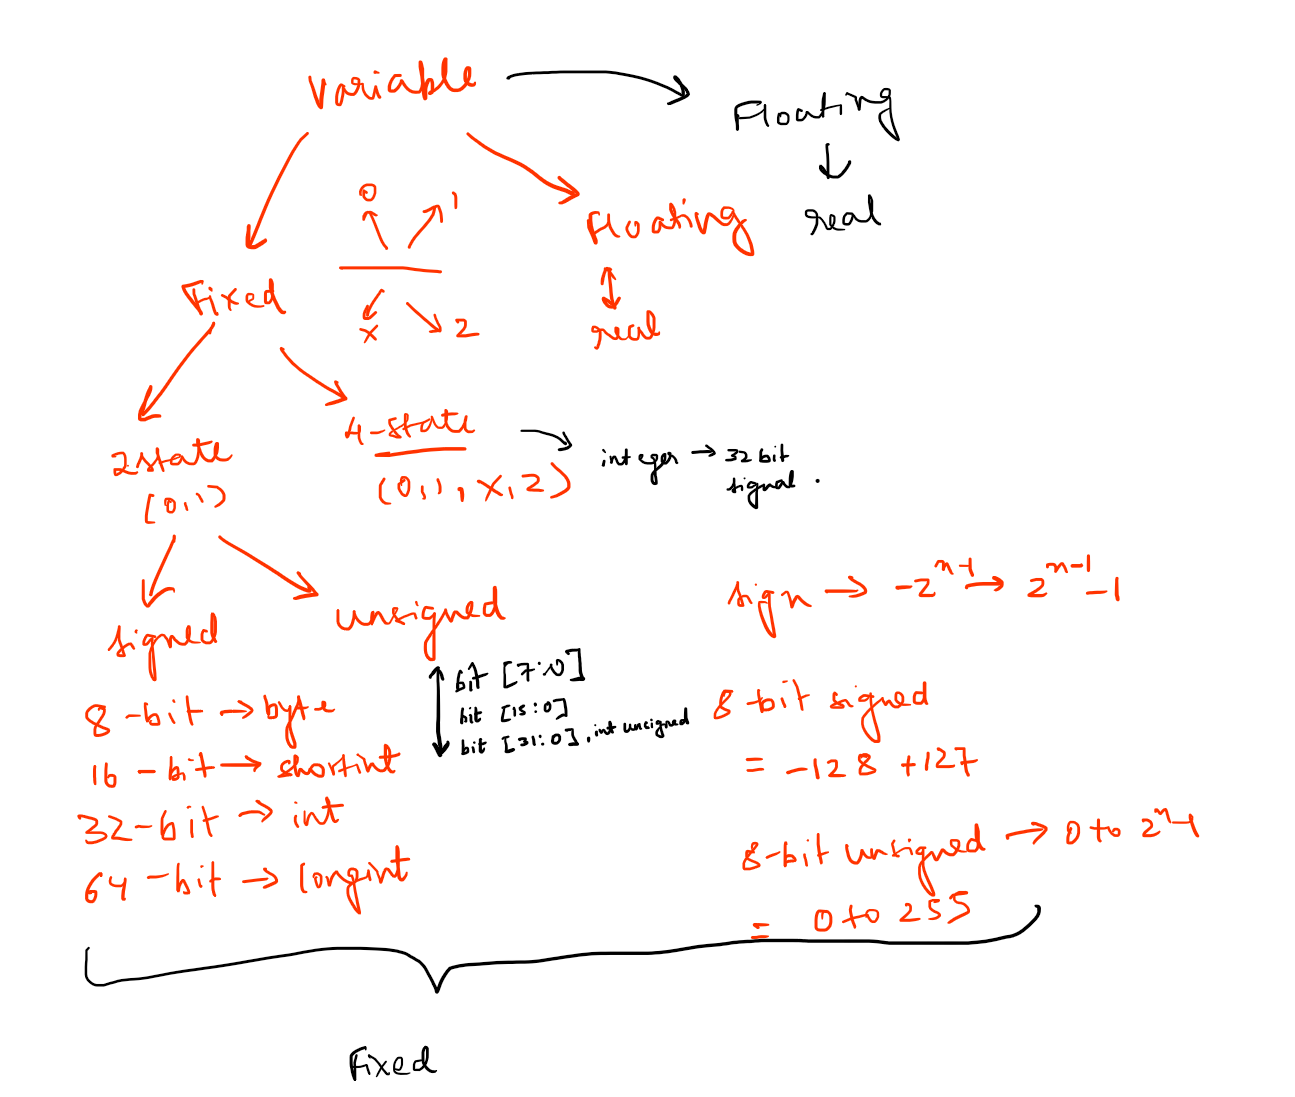 Variable
Floating
real
0 1
x 2
Floating
real
Fixed
2state
(0,1)
4-state
(0,1,x,2)
integer → 32 bit
signal.
signed
unsigned
8-bit → byte
16-bit → shortint
32-bit → int
64-bit → longint
bit [7:0]
bit [15:0]
bit [31:0], int unsigned
sign → -2^n-1 → 2^n-1 -1
8-bit signed
= -128 +127
8-bit unsigned → 0 to 2^n-1
= 0 to 255
Fixed